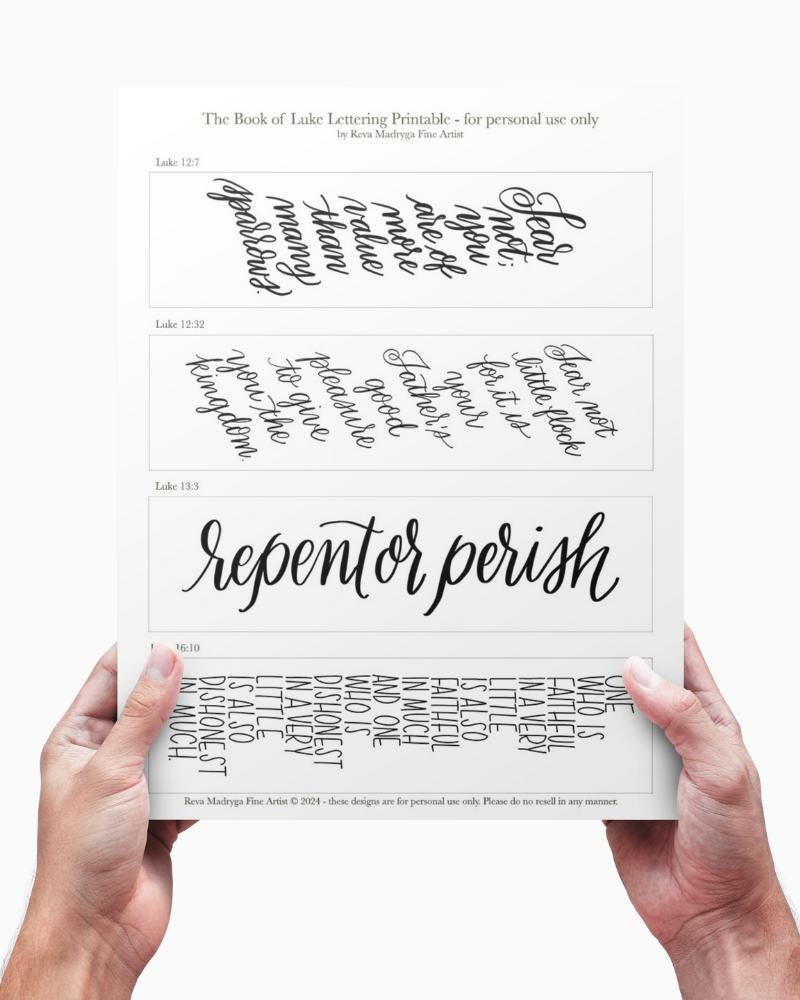 The Book of Luke Lettering Printable - for personal use only
by Reva Madryga Fine Artist
Luke 12:7
Fear
not;
you
are of
more
value
than
many
sparrows.
Luke 12:32
Fear not
little flock
for it is
your
Father's
good
pleasure
to give
you the
kingdom.
Luke 13:3
repent or perish
16:10
ONE
WHO IS
FAITHFUL
IN A VERY
LITTLE
IS ALSO
FAITHFUL
IN MUCH
AND ONE
WHO IS
DISHONEST
IN A VERY
LITTLE
IS ALSO
DISHONEST
IN MUCH.
Reva Madryga Fine Artist © 2024 - these designs are for personal use only. Please do no resell in any manner.